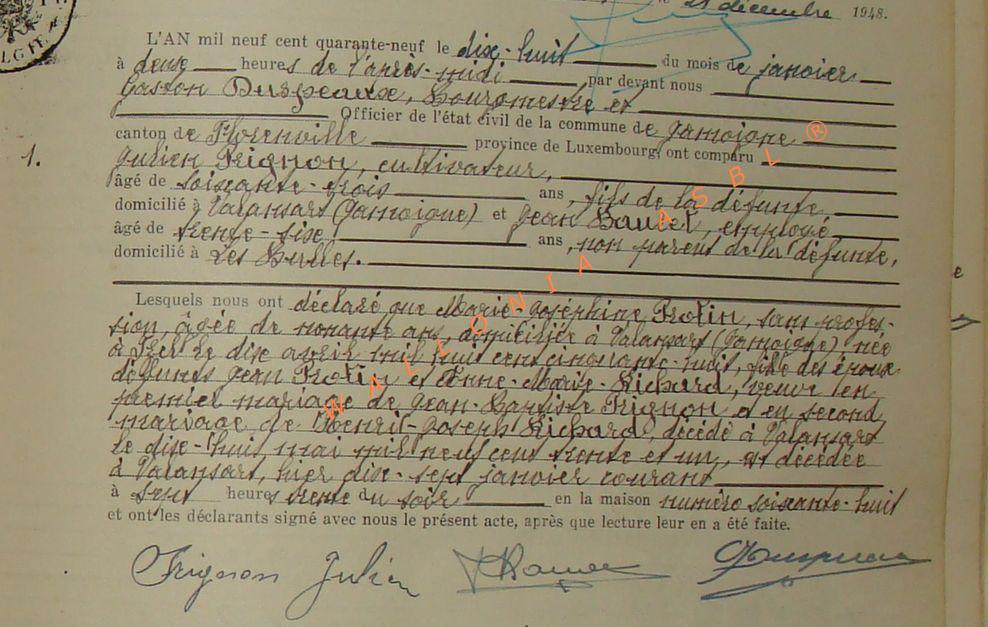 décembre 1948.
L'AN mil neuf cent quarante-neuf le dix-huit du mois de janvier
à deux heures de l'après-midi par devant nous
Gaston Duspeaux, Bourgmestre et
Officier de l'état civil de la commune de Jamoigne
canton de Florenville province de Luxembourg, ont comparu
1.
Julien Frignon, cultivateur,
âgé de soixante-trois ans, fils de la défunte,
domicilié à Valansart (Jamoigne) et Jean employé
âgé de trente-six ans, non parent de la défunte,
domicilié à Les Bulles.
Lesquels nous ont déclaré que Marie-Joséphine Protin, sans profes-
sion, âgée de nonante ans, domiciliée à Valansart (Jamoigne) née
à le dix avril mil huit cent cinquante-huit, fille des époux
défunts Jean Protin et Anne-Marie Richard, veuve en
premier mariage de Jean-Baptiste Frignon et en second
mariage de Henri-Joseph Richard, décédé à Valansart
le dix-huit mai mil neuf cent trente et un, est décédée
à Valansart, hier dix-sept janvier courant
à sept heures trente du soir en la maison numéro soixante-huit
et ont les déclarants signé avec nous le présent acte, après que lecture leur en a été faite.
Frignon Julien
WALLONIA ASBL ®